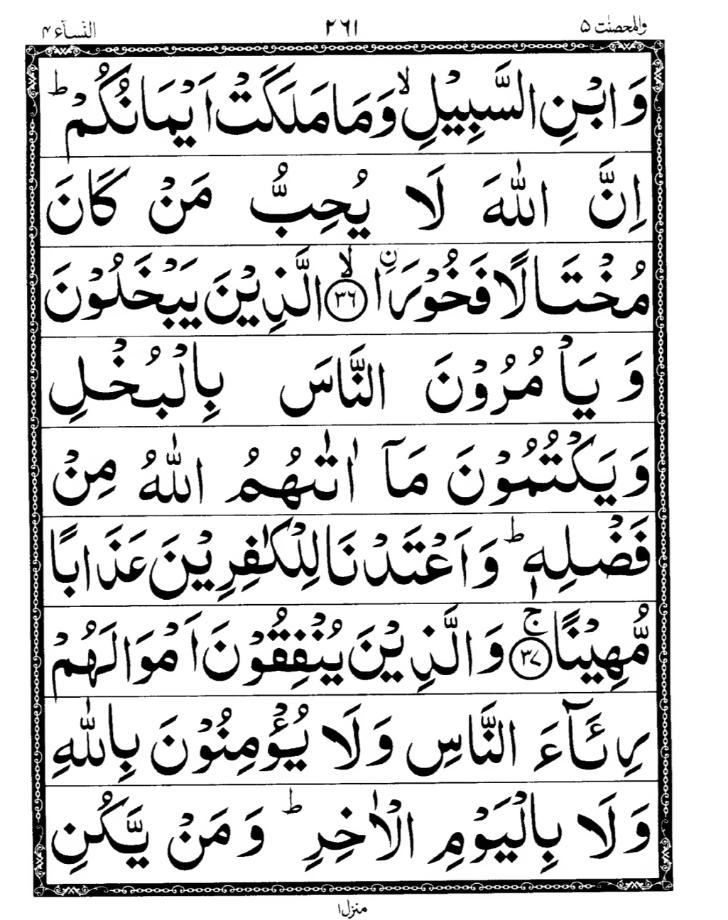 والمحصنت ۵ ۲۶۱ النسآء ۴
وَابْنِ السَّبِيْلِ ۙ وَمَا مَلَكَتْ اَيْمَانُكُمْ ؕ
اِنَّ اللّٰهَ لَا يُحِبُّ مَنْ كَانَ
مُخْتَالًا فَخُوْرَاۨ ۙ﴿۳۶﴾ الَّذِيْنَ يَبْخَلُوْنَ
وَيَاْمُرُوْنَ النَّاسَ بِالْبُخْلِ
وَيَكْتُمُوْنَ مَاۤ اٰتٰىهُمُ اللّٰهُ مِنْ
فَضْلِهٖ ؕ وَاَعْتَدْنَا لِلْكٰفِرِيْنَ عَذَابًا
مُّهِيْنًا ۚ﴿۳۷﴾ وَالَّذِيْنَ يُنْفِقُوْنَ اَمْوَالَهُمْ
رِئَآءَ النَّاسِ وَلَا يُؤْمِنُوْنَ بِاللّٰهِ
وَلَا بِالْيَوْمِ الْاٰخِرِ ؕ وَمَنْ يَّكُنِ
منزل ۱